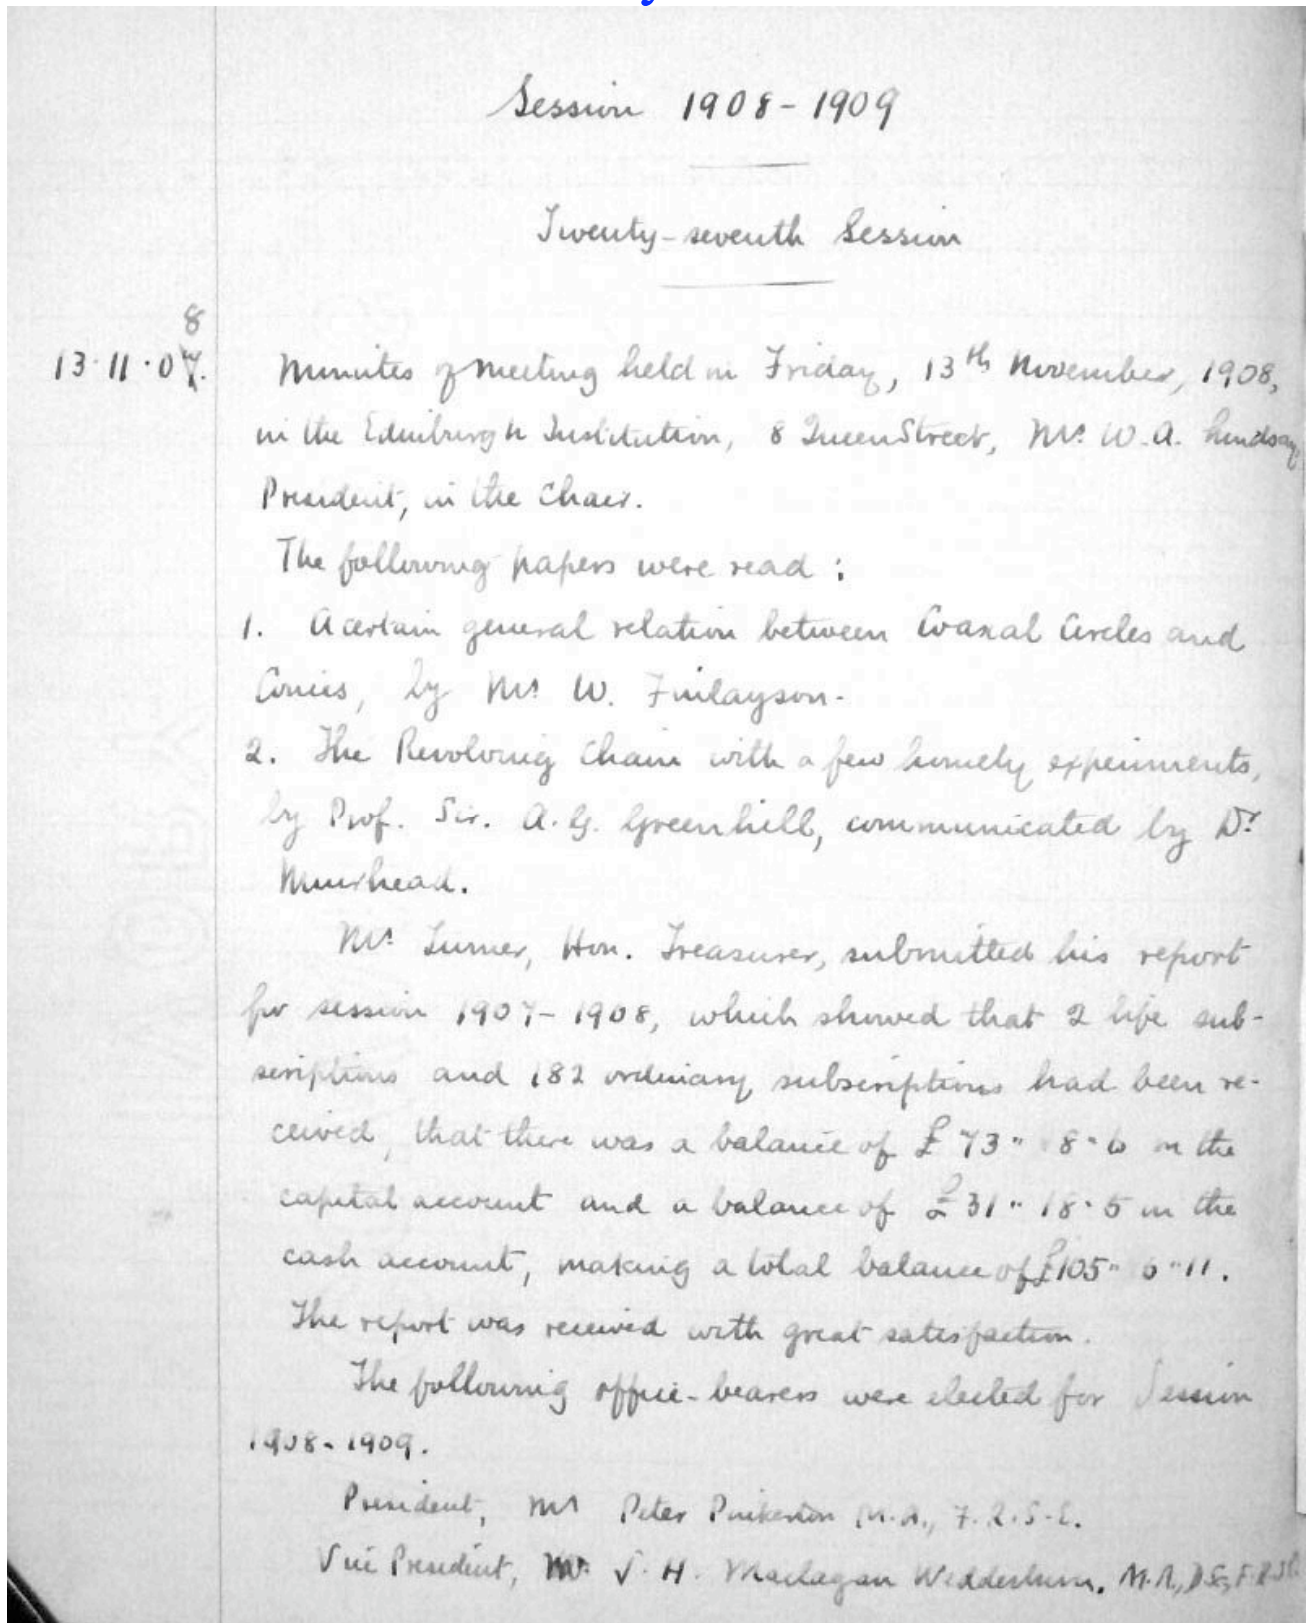 Session 1908-1909
Twenty-seventh Session
8
13.11.07.
Minutes of meeting held on Friday, 13th November, 1908,
in the Edinburgh Institution, 8 Queen Street, Mr. W.A. Lindsay,
President, in the Chair.
The following papers were read :
1. A certain general relation between Coaxal Circles and
Conics, by Mr. W. Finlayson.
2. The Revolving Chain with a few homely experiments,
by Prof. Sir. A.G. Greenhill, communicated by Dr.
Muirhead.
Mr. Turner, Hon. Treasurer, submitted his report
for session 1907-1908, which showed that 2 life sub-
scriptions and 182 ordinary subscriptions had been re-
ceived, that there was a balance of £73" 8" 6 on the
capital account and a balance of £31" 18" 5 on the
cash account, making a total balance of £105" 6" 11.
The report was received with great satisfaction.
The following office-bearers were elected for Session
1908-1909.
President, Mr Peter Pinkerton M.A., F.R.S.E.
Vice President, Mr. J. H. Maclagan Wedderburn, M.A., D.Sc., F.R.S.E.